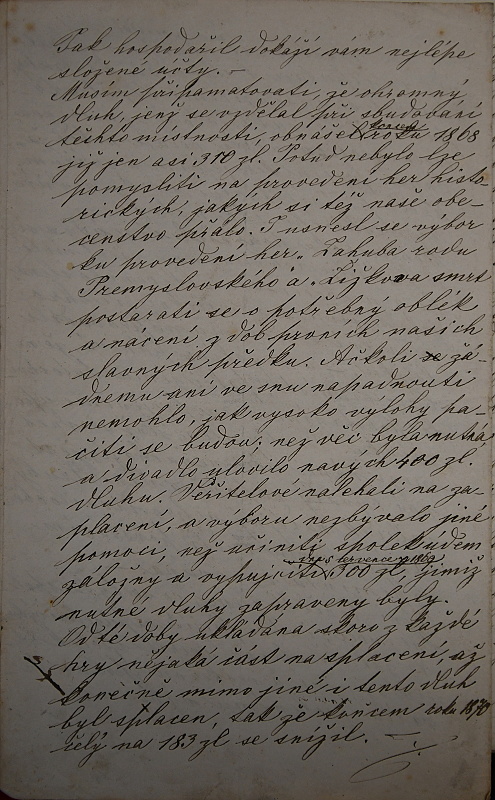 Jak hospodařil dokáží vám nejlépe
složené účty. –
Musím připamatovati, že ohromný
dluh, jenž se vzdělal při zbudování
těchto místností, obnášel koncem roku 1868
již jen asi 310 zl. Potud nebylo lze
pomysliti na provedení her histo-
rických, jakých si též naše obe-
censtvo přálo. I usnesl se výbor
ku provedení her „Záhuba rodu
Přemyslovského" a „Žižkova smrt
postarati se o potřebný oblék
a náčení z dob prvních našich
slavných předků. Ačkoli se žá-
dnému ani ve snu napadnouti
nemohlo, jak vysoko výlohy pa-
čiti se budou: než věc byla nutná
a divadlo ulovilo nových 400 zl.
dluhu. Věřitelové naléhali na za-
placení, a výboru nezbývalo jiné
pomoci, než učiniti spolek údem
záložny a vypůjčiti dne 5 července 1869 700 zl, jimiž
nutné dluhy zapraveny byly.
Od té doby ukládána skoro z každé
hry nějaká část na splacení, až
konečně mimo jiné i tento dluh
byl splacen, tak že koncem roku 1870
celý na 183 zl se snížil. –